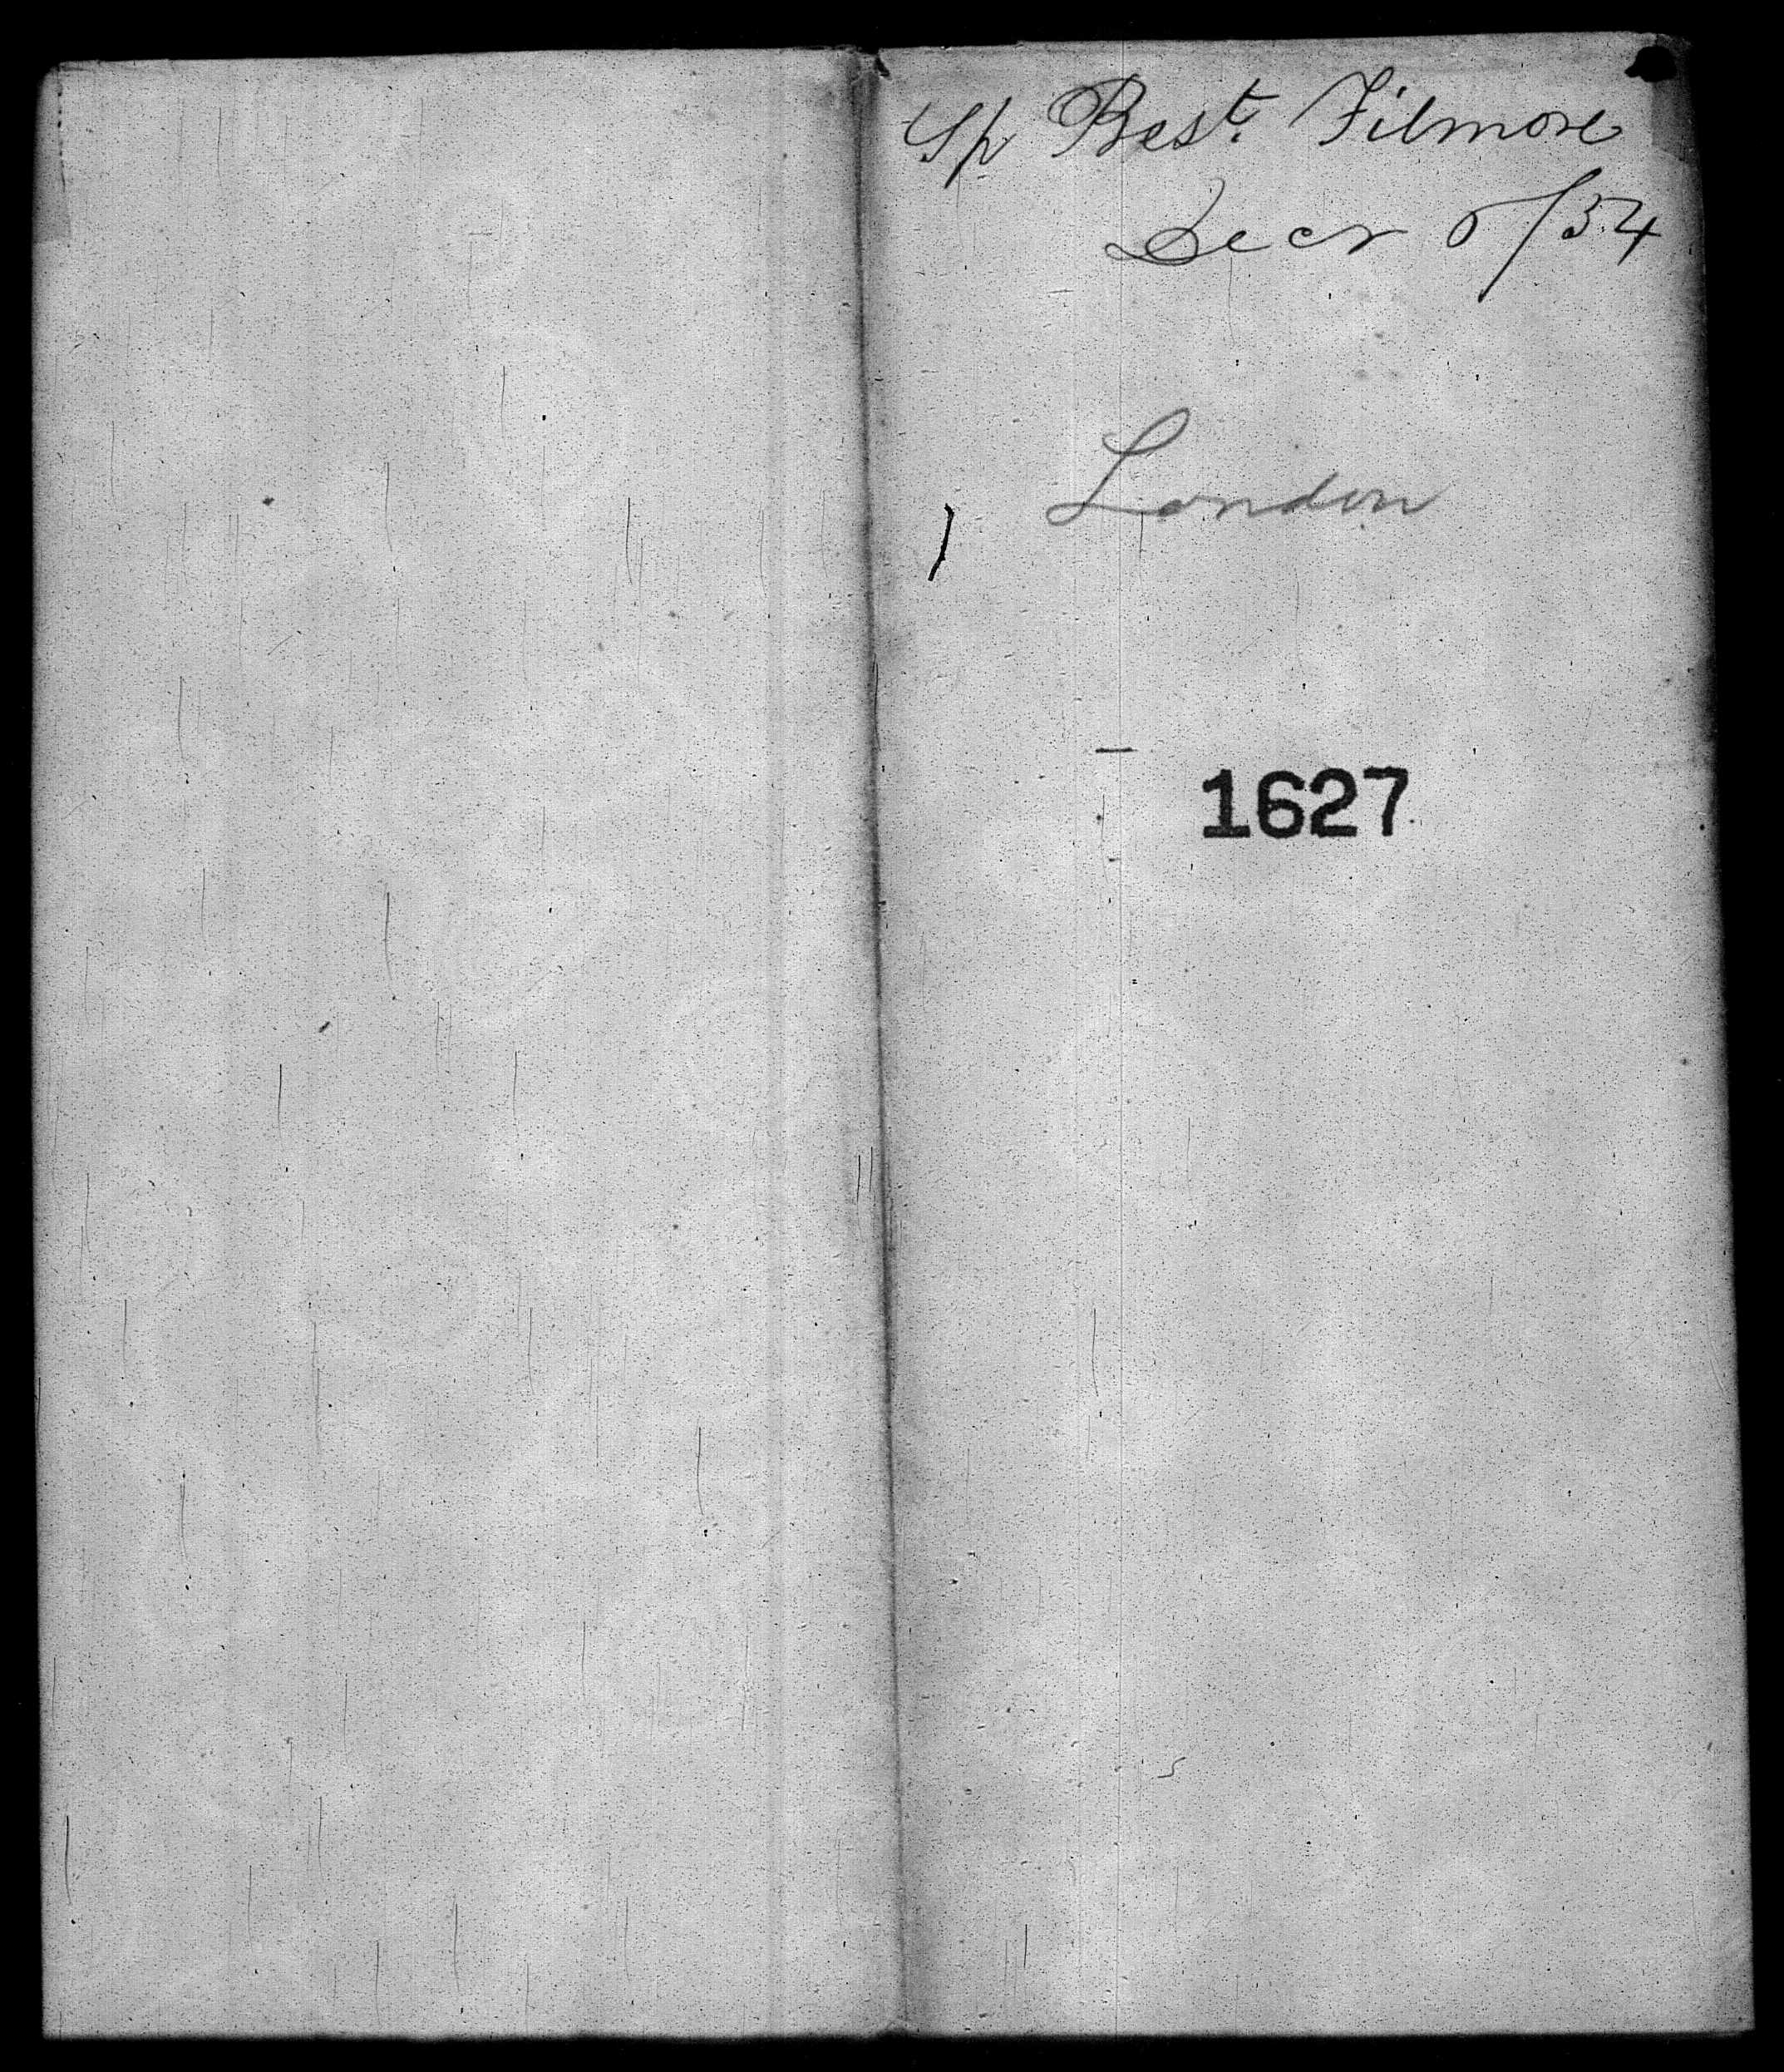 Sp Best. Filmore
Decr 5/54
London
1627